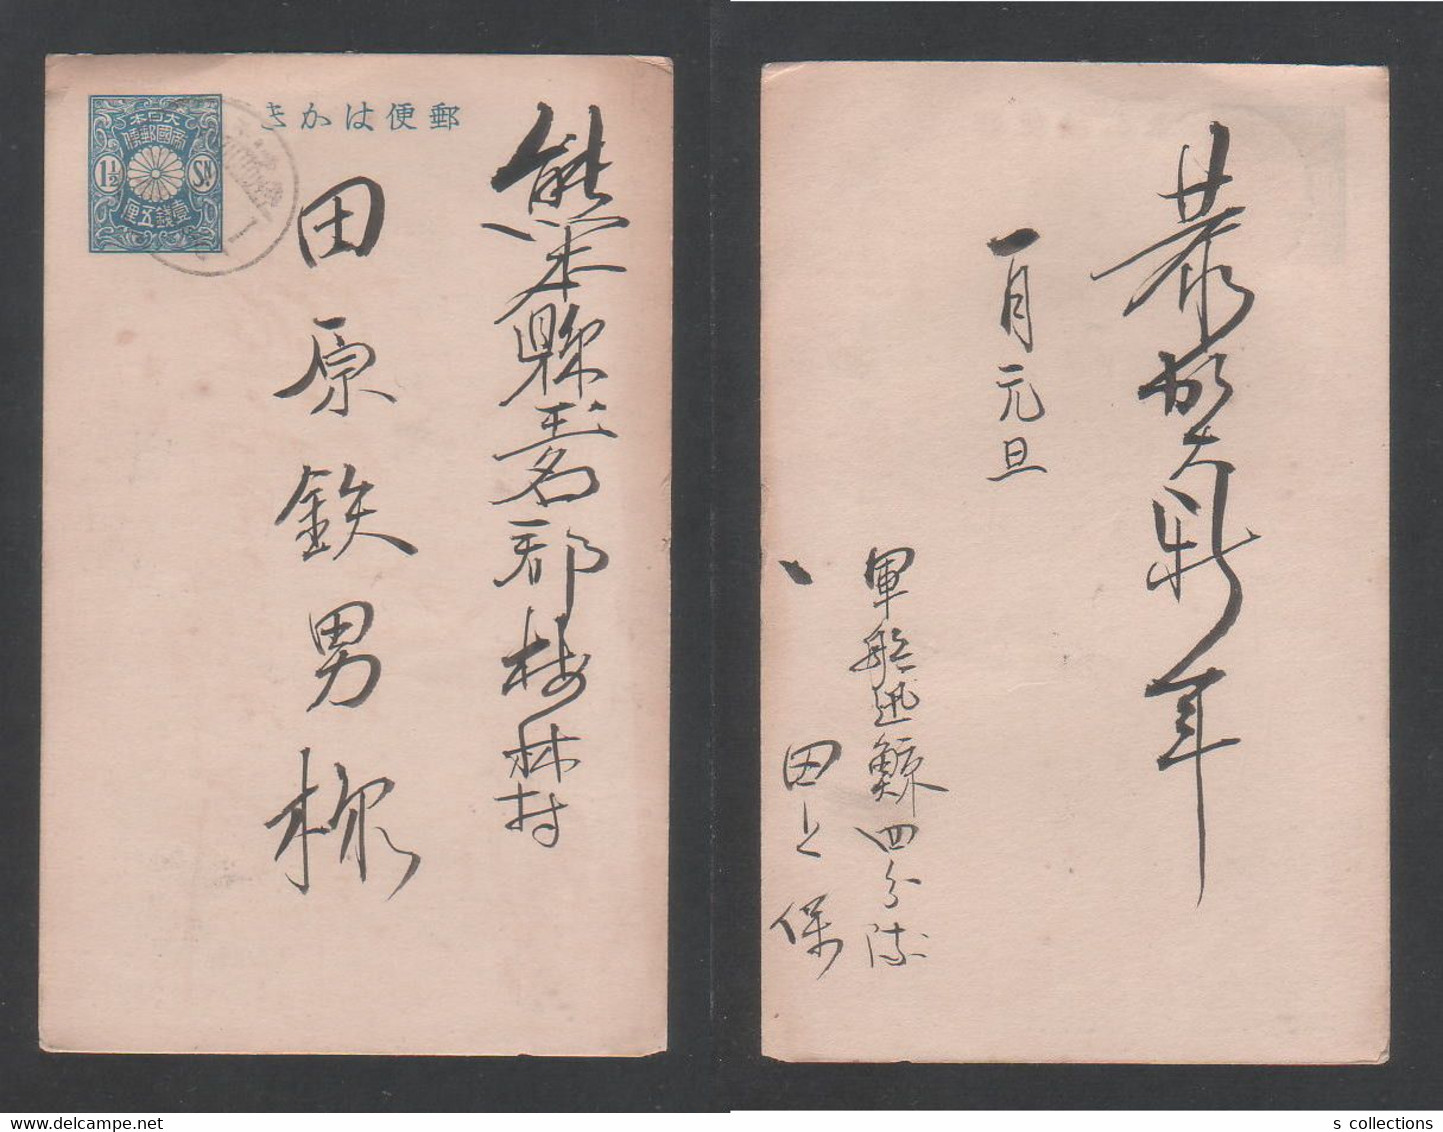 郵便はかき
大日本
帝國郵便
1½ Sn
壹銭五厘
熊本縣玉名郡梅林村
田原鉄男様
恭賀新年
一月元旦
軍艦迅鯨四分隊
田上保
s collections